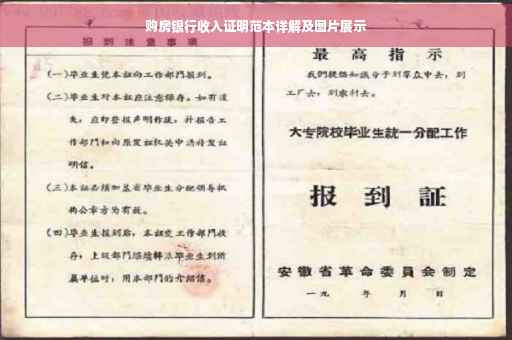 购房银行收入证明范本详解及图片展示
报到注意事项
(一)毕业生凭本证向工作部门报到。
(二)毕业生对本证应注意保存。如有遗
失，应即登报声明作废，并报告工
作部门和向原发证机关申请补发证
明信。
(三)本证必须加盖省毕业生分配领导机
构公章方为有效。
(四)毕业生报到后，本证交工作部门收
存；上级部门继续转派毕业生到所
属单位时，用本部门的介绍信。
最高指示
我们提倡知识分子到群众中去，到
工厂去，到农村去。
大专院校毕业生统一分配工作
报到证
安徽省革命委员会制定
一九 年 月 日